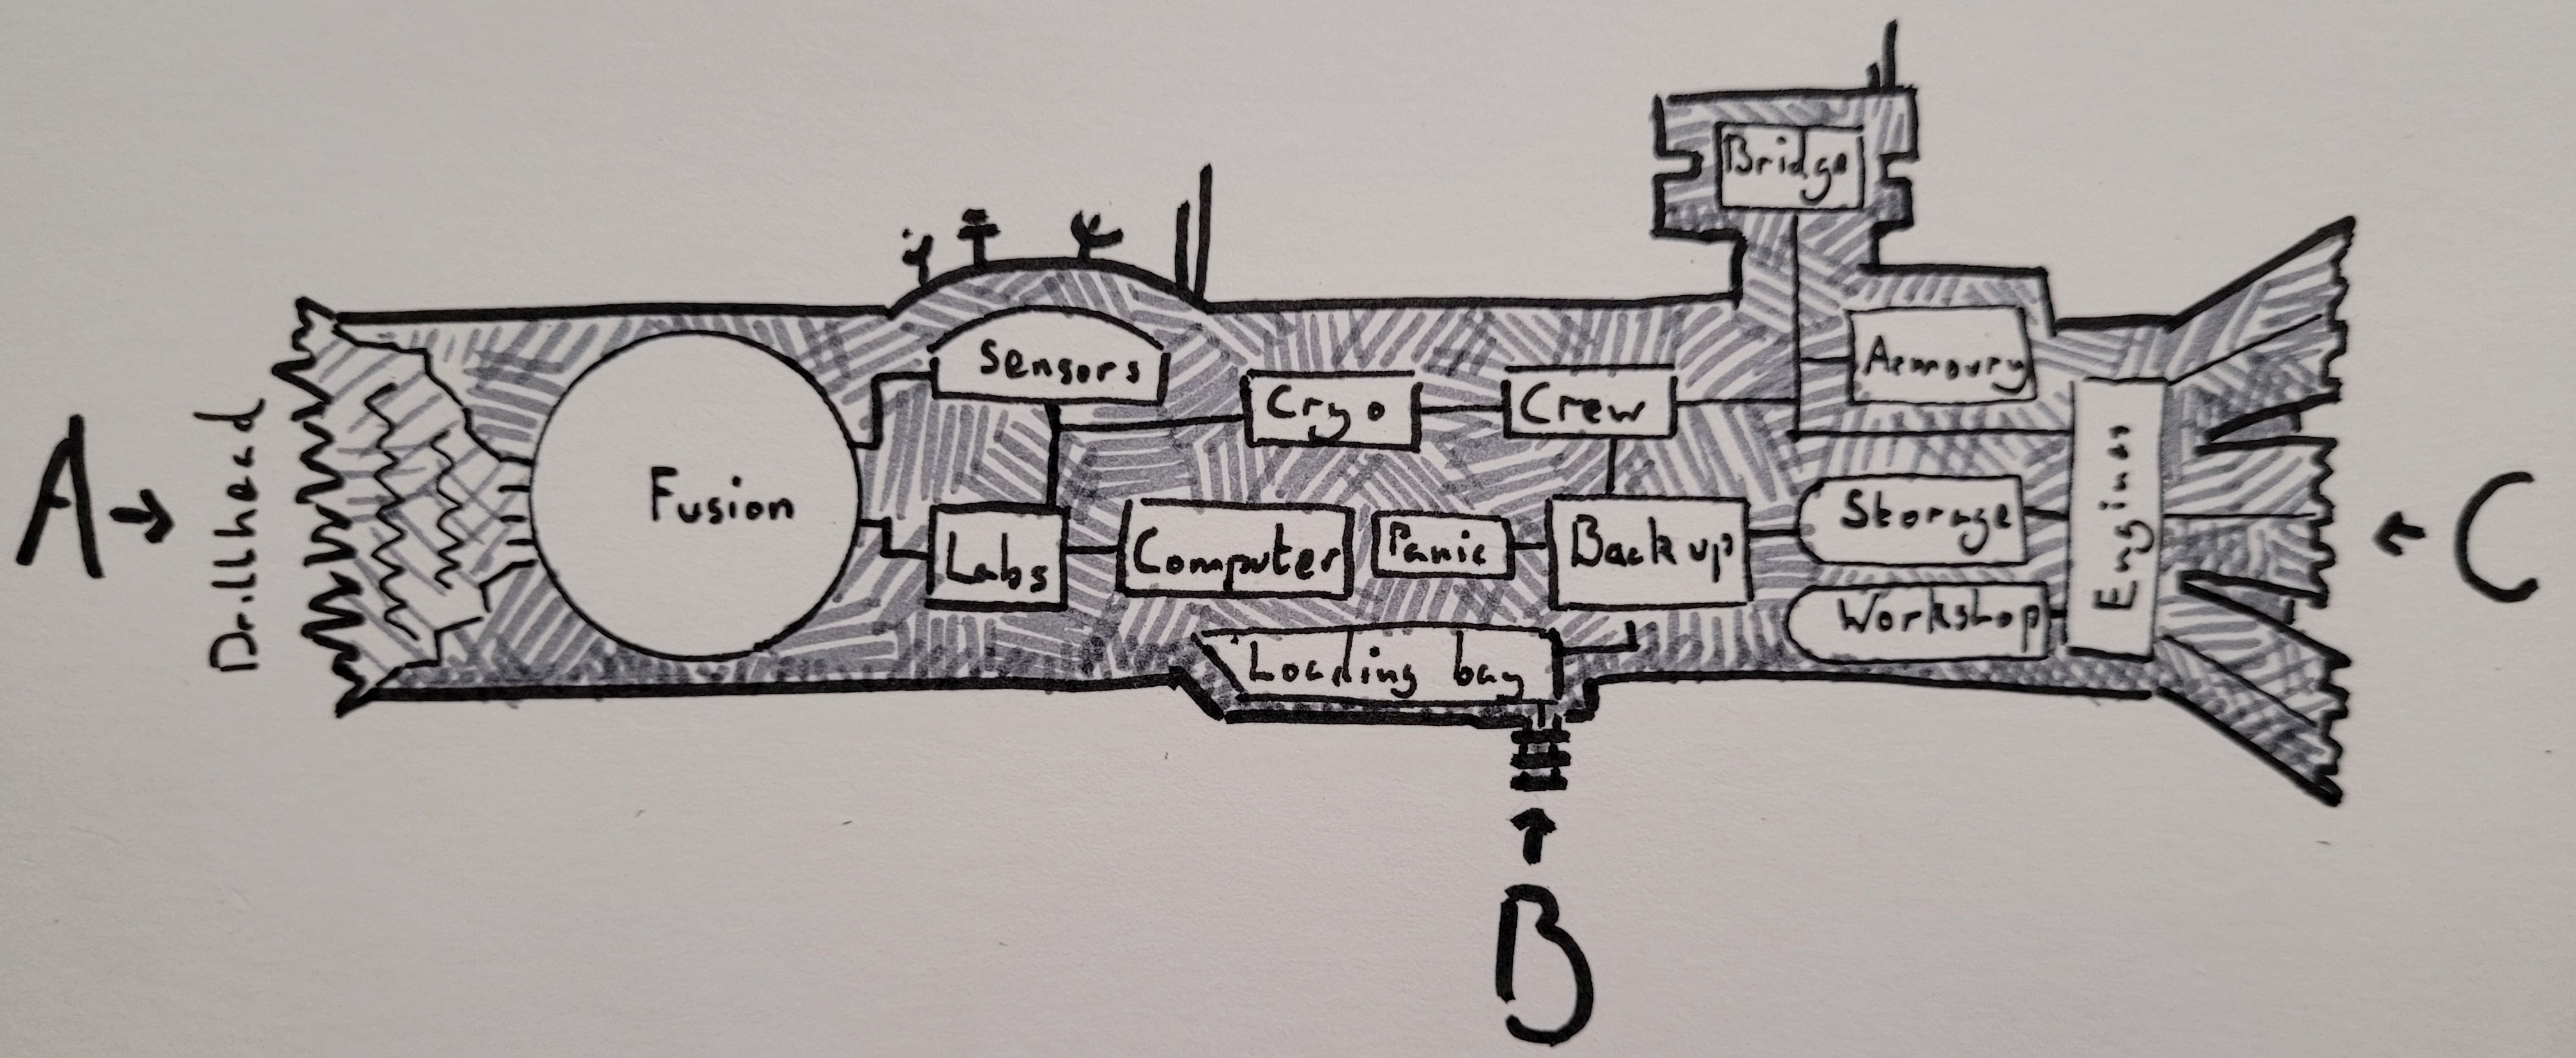 Bridge
Sensors
Armoury
Cryo
Crew
A
Drillhead
Fusion
Storage
Engines
C
Labs
Computer
Panic
Back up
Workshop
Loading bay
B